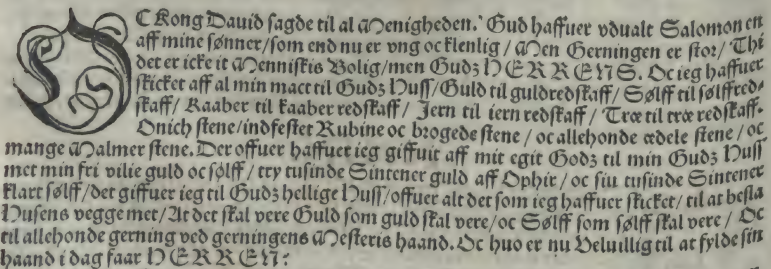 OC Kong Dauid sagde til al Menigheden. Gud haffuer vdualt Salomon en
aff mine sønner/som end nu er vng oc klenlig/Men Gerningen er stor/Thi
det er icke it Menniskis Bolig/men Gudz HERRENS. Oc ieg haffuer
skicket aff al min mact til Gudz Huss/Guld til guldredskaff/Sølff til sølffred-
skaff/Kaaber til kaaber redskaff/Jern til iern redskaff/Træ til træ redskaff.
Onich stene/indfestet Rubine oc brogede stene/oc allehonde ædele stene/oc
mange Malmer stene. Der offuer haffuer ieg giffuit aff mit egit Godz til min Gudz Huss
met min fri vilie guld oc sølff/try tusinde Sintener guld aff Ophir/oc siu tusinde Sintener
klart sølff/det giffuer ieg til Gudz hellige Huss/offuer alt det som ieg haffuer skicket/til at besla
Husens vegge met/At det skal vere Guld som guld skal vere/oc Sølff som sølff skal vere/Oc
til allehonde gerning ved gerningens Mesteris haand. Oc huo er nu Veluillig til at fylde sin
haand i dag faar HERREN?